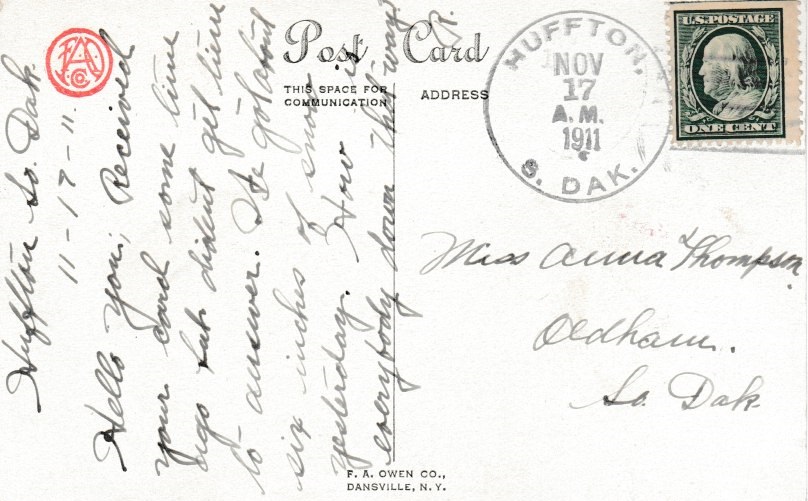 Post Card
THIS SPACE FOR
COMMUNICATION
ADDRESS
HUFFTON,
NOV
17
A.M.
1911
S. DAK.
U.S. POSTAGE
ONE CENT
Huffton So. Dak.
11-17-11.
Hello you; Received
your card some time
ago but dident get time
to answer. We got about
six inches of snow
yesterday. How is
everybody down that way?
Miss Anna Thompson
Oldham.
So. Dak.
F. A. OWEN CO.,
DANSVILLE, N. Y.